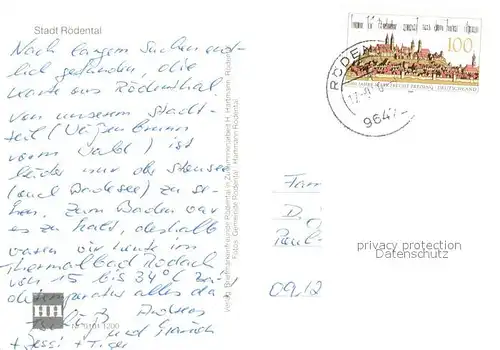 Stadt Rödental
Nach langem Suchen end-
lich gefunden, die
Karte aus Rödenthal.
Von unserem Stadt-
teil
vorm Wald) ist
leider nur der Stausee
(auch Badesee) zu se-
hen. Zum Baden war
es zu kalt, deshalb
waren wir heute im
Thermalbad Rodach
von 15 bis 34°C
alles da
und
+ Jessi + Tiger
Nr. 0101 1200
Verlag: Briefmarkenfreunde Rödental in Zusammenarbeit H. Hartmann, Rödental
Fotos: Gemeinde Rödental, Hartmann Rödental
100
DEUTSCHLAND
RÖDEN
9647
Fam
D.
Paul-
09.12
privacy protection
Datenschutz